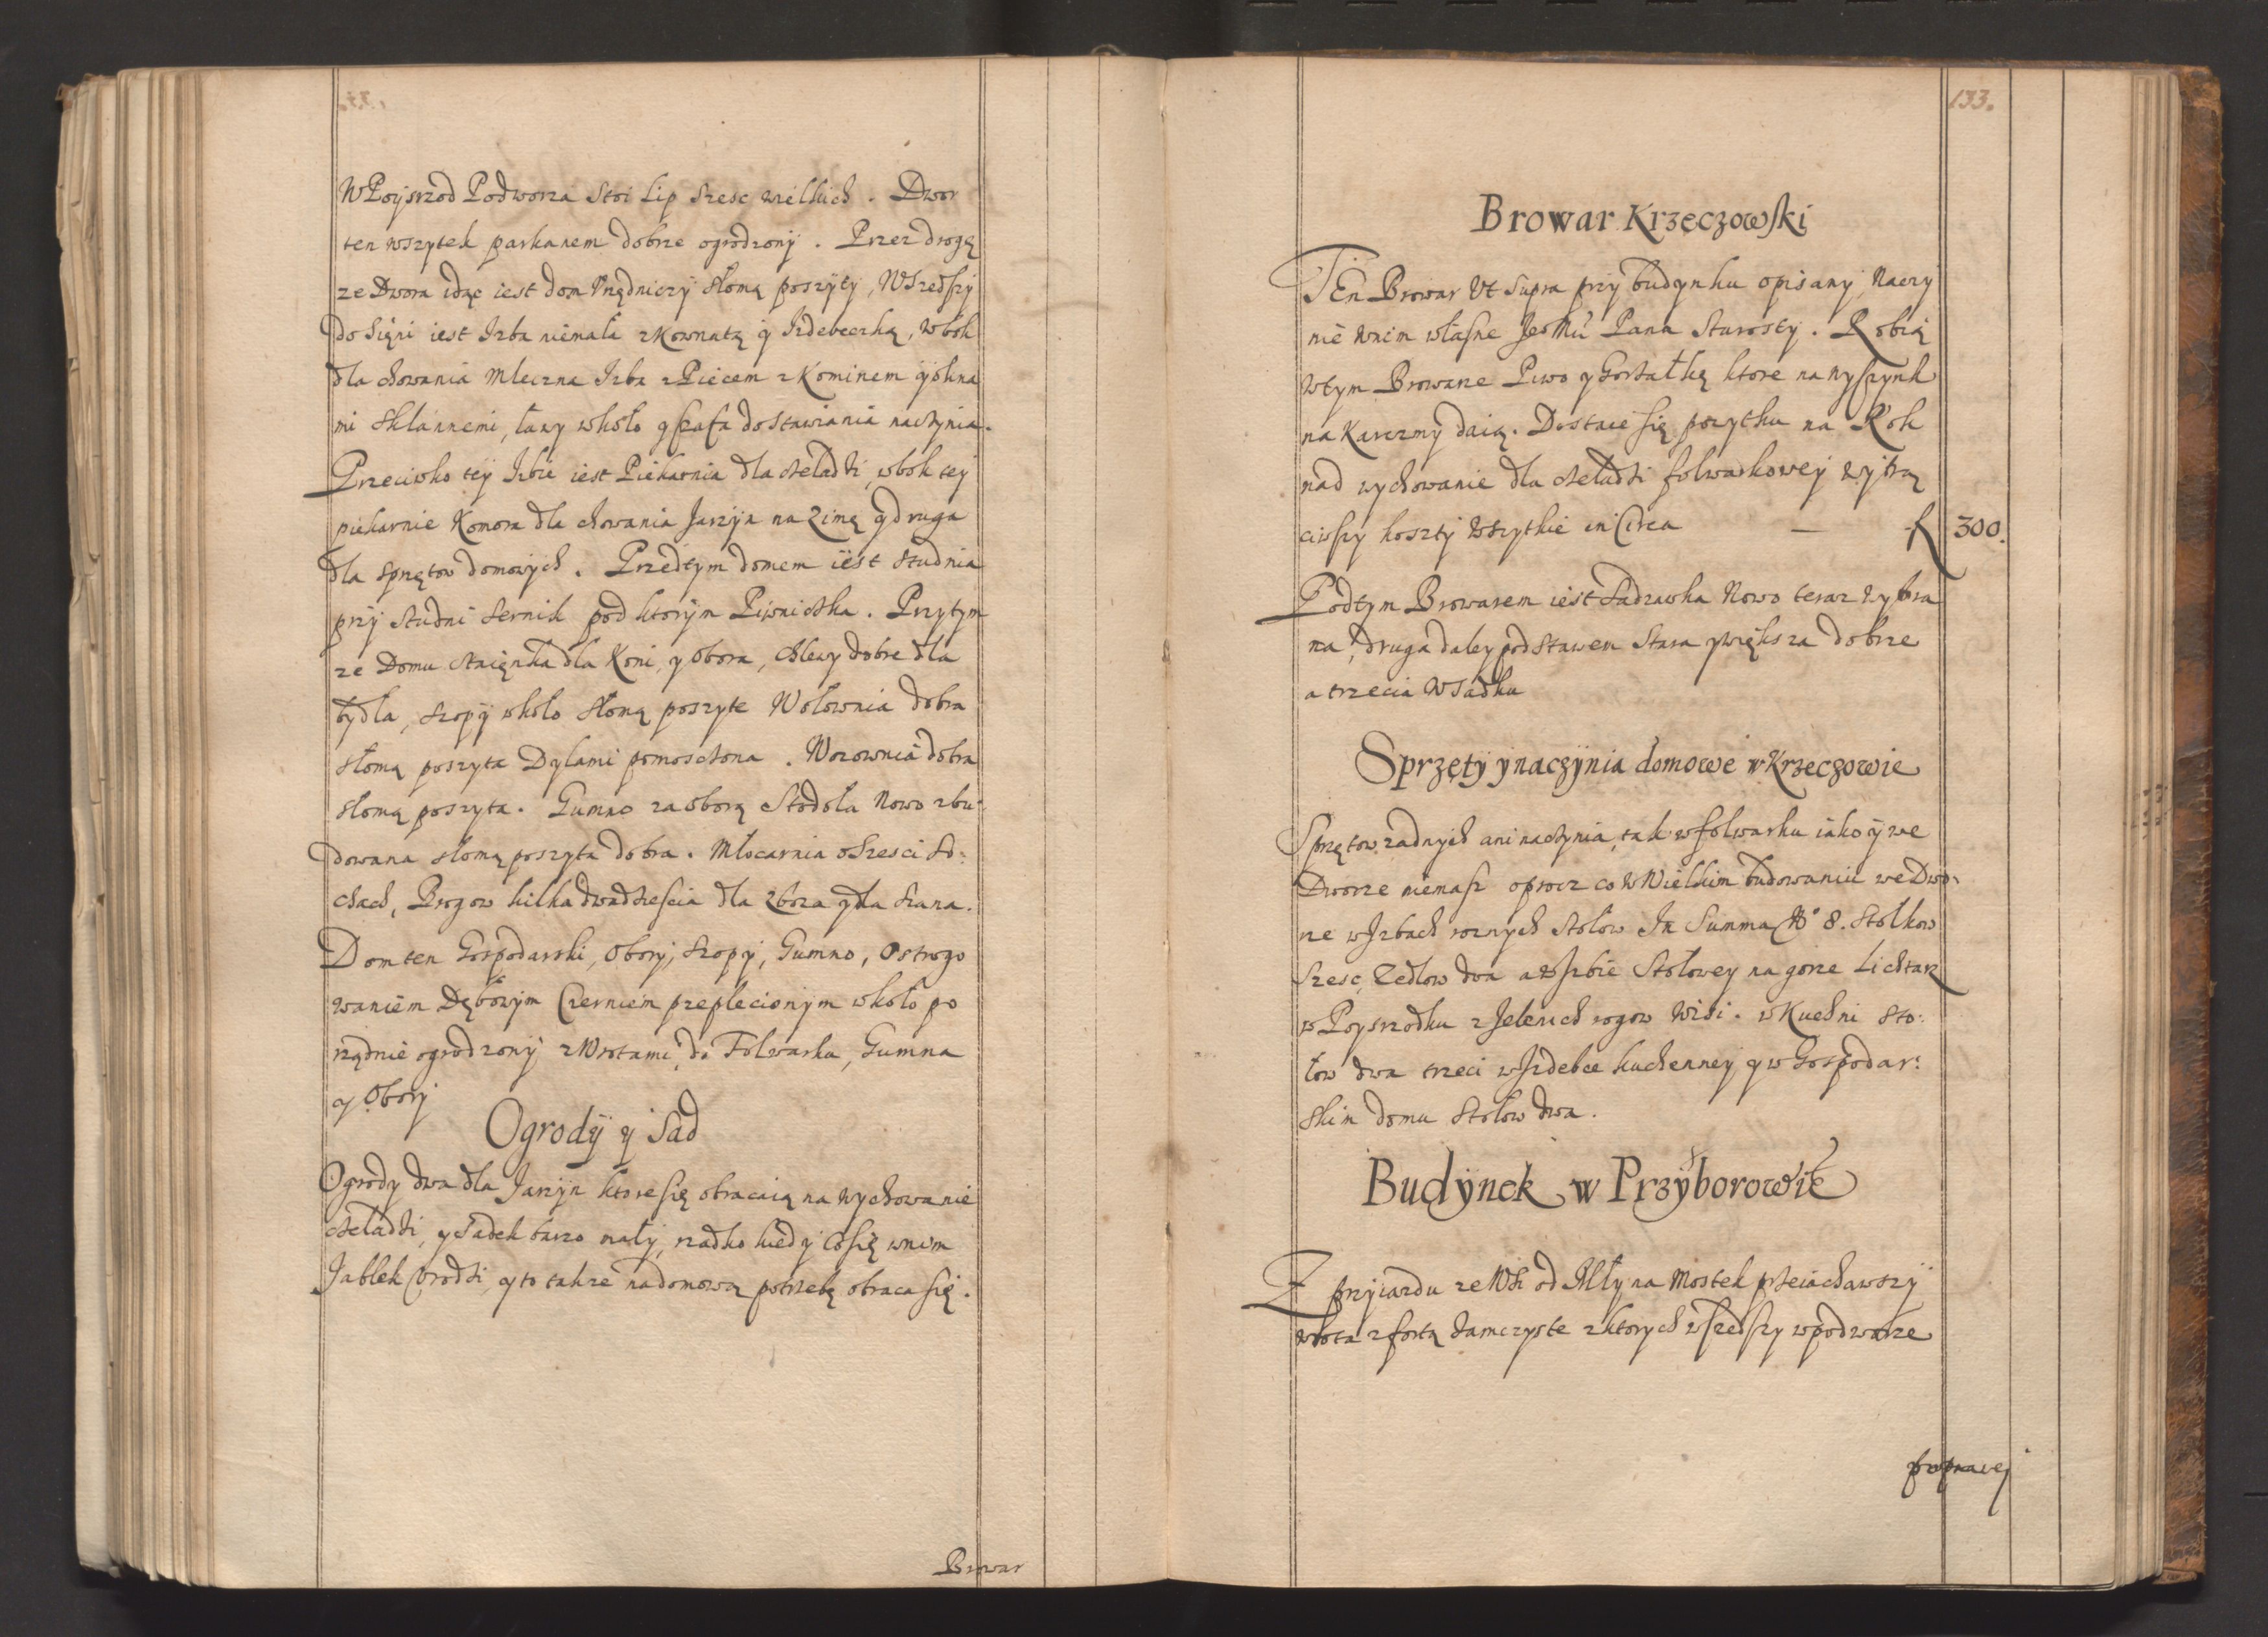 W Poysrzod Podworza stoi Lip szesc wielkich. Dwor
ten wszytek parkanem dobrze ogrodzony. Przez drogę
ze Dwora idąc iest dom Vrzędniczy słomą poszyty, Wszedszy
do Sięni iest Izba niemała z Kownatą y Izdebeczką, w bok
dla chowania Mleczna Izba z Piecem z Kominem y okna
mi sklannemi, ławy wkoło y szafa do stawiania naczynia.
Przeciwko tey Izbie iest Piekarnia dla czeladzi, w bok tey
piekarnie Komora dla chowania Jarzyn na zimę y druga
dla sprzętow domowych. Przed tym domem iest studnia
przy studni sernik pod ktorym Piwniczka. Przytym
ze Domu staięnka dla Koni, y Obora, chlewy dobre dla
bydła, szopy wkoło słomą poszyte Wołownia dobra
słomą poszyta Dylami pomoszczona. Wozownia dobra
słomą poszyta. Gumno za oborą Stodoła Nowo zbu-
dowana słomą poszyta dobra. Młocarnia o szesci So:
chach, Brogow kilkadwadziescia dla zboza y dla siana.
Dom ten Gospodarski, Obory, szopy, Gumno, Ostrogo
waniem Dębowym Czerniem przeplecionym wkoło po
rządnie ogrodzony z Wrotami, do Folwarku, Gumna
y Obory
Ogrody y Sad
Ogrody dwa dla Jarzyn ktore się obracaią na wychowanie
czeladzi, y Sadek barzo mały, rzadko kiedy co się w nim
Jablek Vrodzi, y to takze na domową potrzebę obraca się.
Browar
133.
Browar Krzęczowski
Ten Browar Vt Supra przy budynku opisany, Naczy
nie w nim własne Jeo Mci Pana Starosty. Robią
w tym Browarze Piwo y Gorzałkę ktore na wyszynk
na Karczmy daią. Dostaie się pozytku na Rok
nad wychowanie dla czeladzi folwarkowey wytrą
ciwszy koszty wszytkie in Circa — f 300.
Pod tym Browarem iest Sadzawka Nowo teraz wybra
na, druga daley pod stawem stara y większa dobrze
a trzecia w sadku
Sprzęty y naczynia domowe w Krzeczowie
Sprzętow zadnych ani naczynia, tak w folwarku iako y we
Dworze niemasz oprocz co w Wielkim budowaniu we Dwo-
rze w Izbach roznych stołow In Summa No 8. stołkow
szesc, Zedlow dwa a w Izbie stołowey na gorze Lichtarz
w Poysrzodku z Jelenich rogow wisi. w Kuchni sto:
łow dwa trzeci w Izdebce kuchenney y w Gospodar:
skim domu stołow dwa.
Budynek w Przyborowie
Z przyiazdu ze Wsi od Młyna Mostek przeiachawszy
wrota z fortą zamczyste z ktorych wszedszy w podworze
po prawey